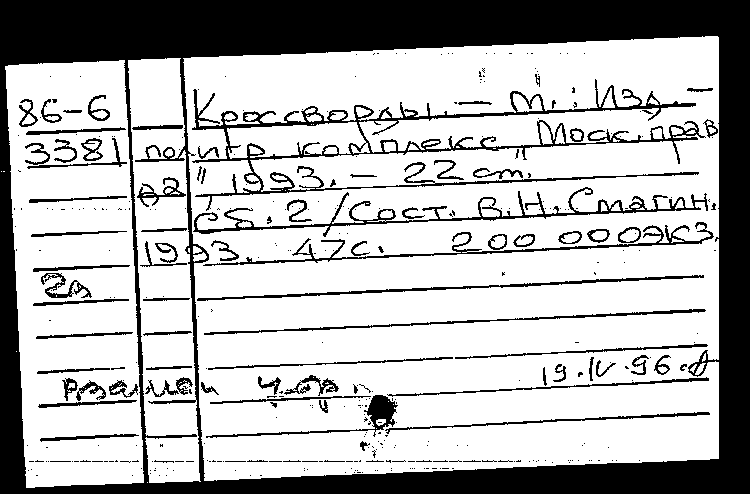 86-6 Кроссворды. — М.: Изд.-
3381 полигр. комплекс „Моск. прав
да", 1993. - 22 cm.
Сб. 2 / Сост. В.Н. Смагин.
1993. 47с. 200 000 экз.
2д
19.IV.96.